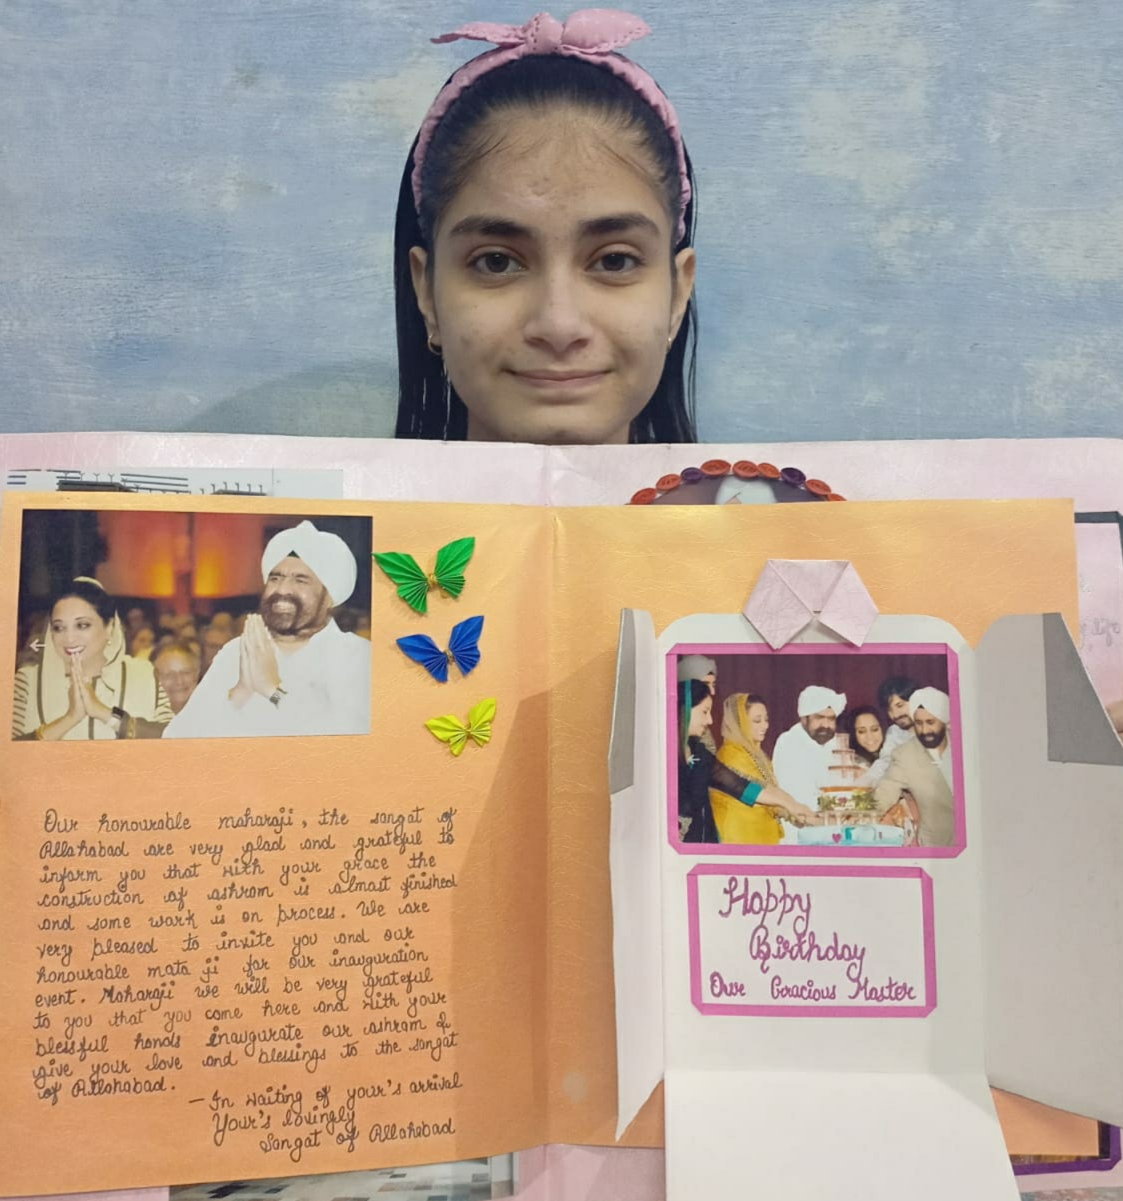 Our honourable maharaji, the sangat of
Allahabad are very glad and grateful to
inform you that with your grace the
construction of ashram is almost finished
and some work is on process. We are
very pleased to invite you and our
honourable mata ji for our inauguration
event. Maharaji we will be very grateful
to you that you come here and with your
blessful hands inaugurate our ashram &
give your love and blessings to the sangat
of Allahabad.
- In waiting of your's arrival
Your's lovingly
Sangat of Allahabad
Happy
Birthday
Our Gracious Master